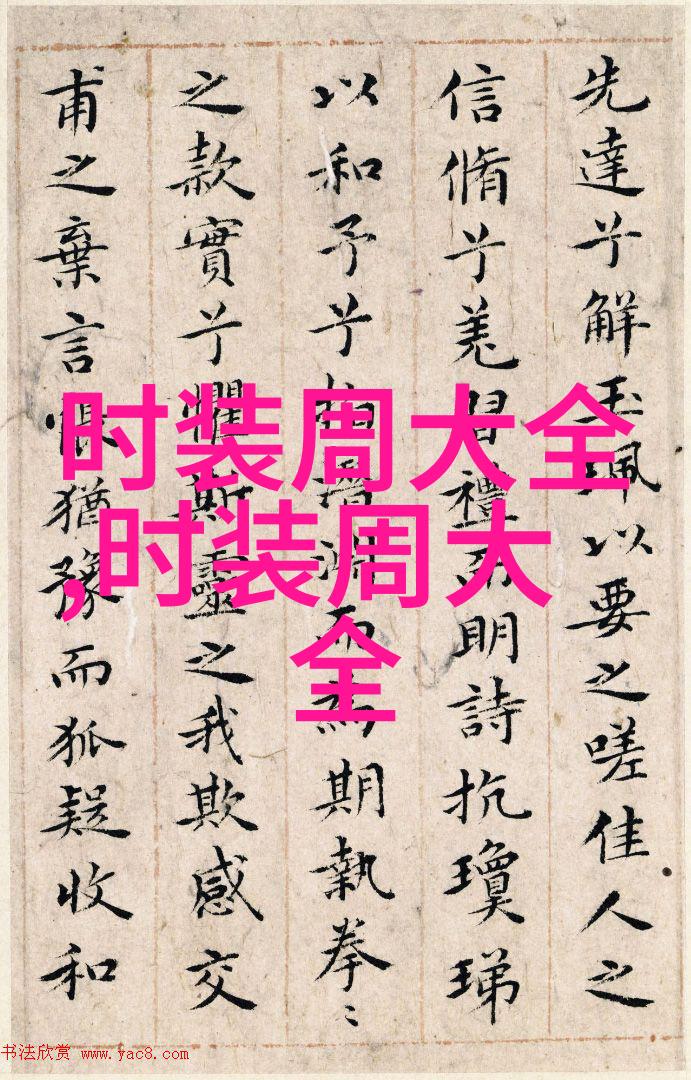 先達兮解玉珮以要之嗟佳人之
信脩兮羌習禮而明詩抗瓊珶
以和予兮指潛淵而為期執拳〻
之款實兮懼斯靈之我欺感交
甫之棄言悵猶豫而狐疑收和
时装周大全
,时装周大
全
书法欣赏 www.yac8.com